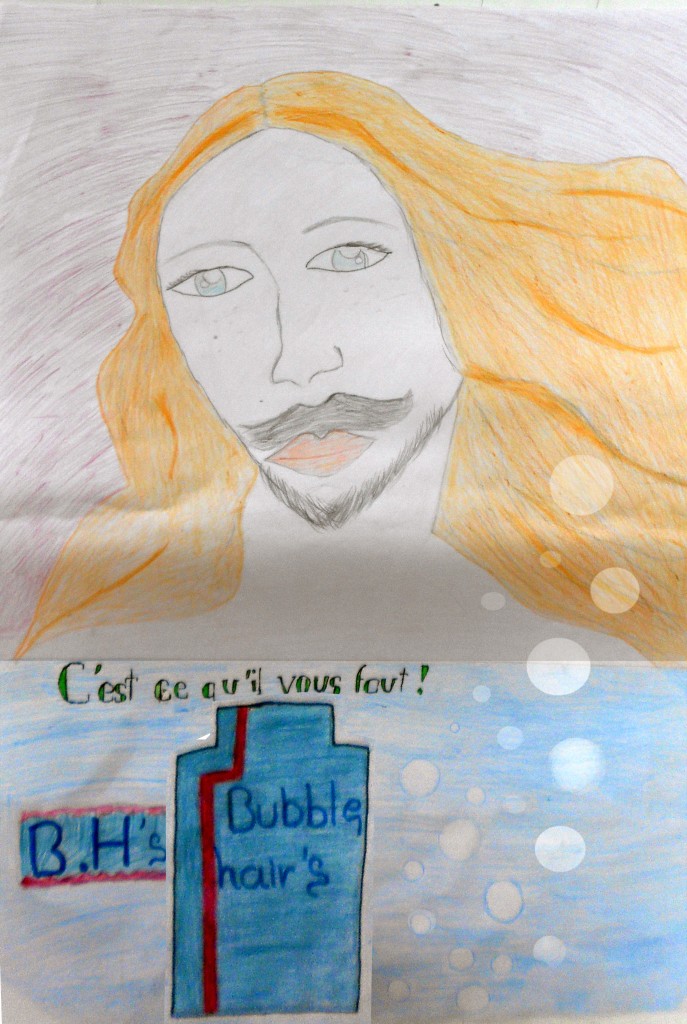 C'est ce qu'il vous faut !
B.H's
Bubble
hair's